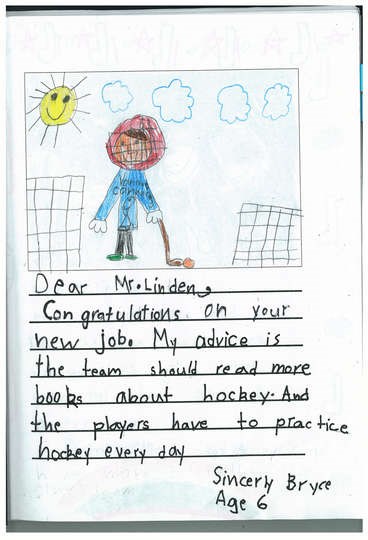 Dear Mr. Linden,
Congratulations on your
new job. My advice is
the team should read more
books about hockey. And
the players have to practice
hockey every day
Sincerly Bryce
Age 6